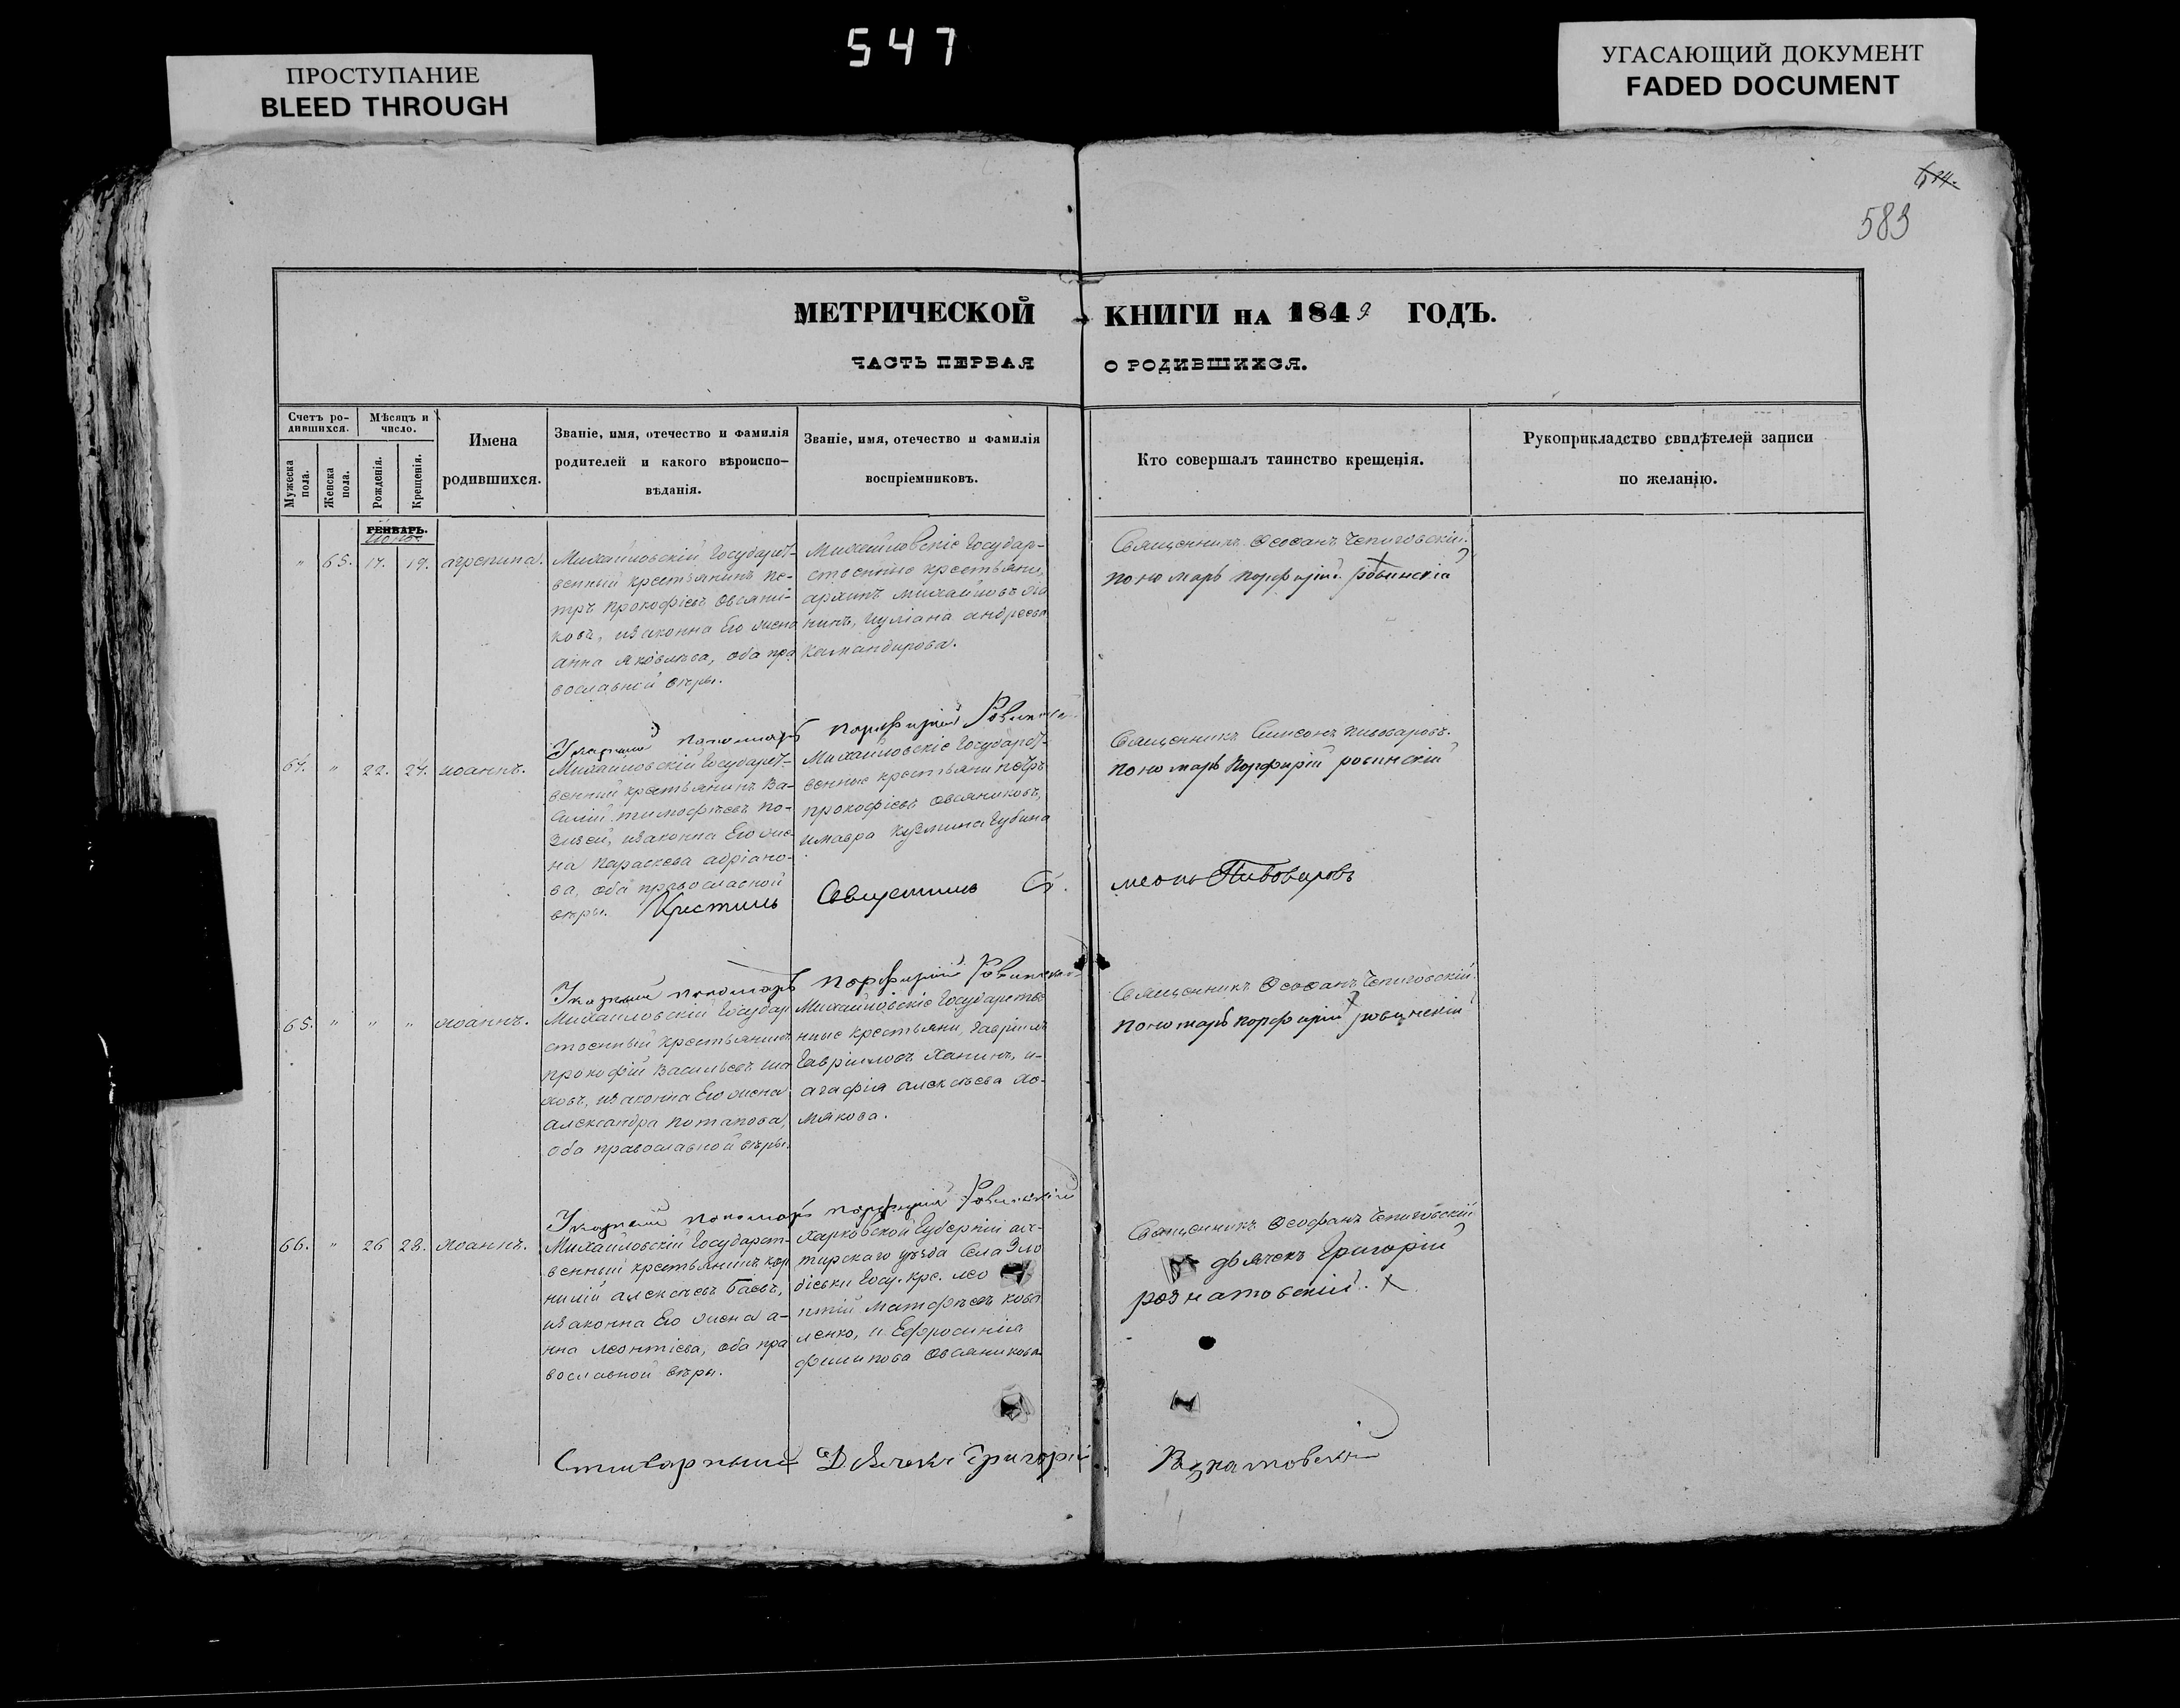 547
ПРОСТУПАНИЕ
BLEED THROUGH
УГАСАЮЩИЙ ДОКУМЕНТ
FADED DOCUMENT
583
МЕТРИЧЕСКОЙ КНИГИ НА 1849 ГОДЪ.
ЧАСТЬ ПЕРВАЯ О РОДИВШИХСЯ.
Счетъ ро-
дившихся.
Мужеска
пола.
Женска
пола.
Мѣсяцъ и
число.
Рожденія.
Крещенія.
Имена
родившихся.
Званіе, имя, отечество и фамилія
родителей и какого вѣроиспо-
вѣданія.
Званіе, имя, отечество и фамилія
воспріемниковъ.
Кто совершалъ таинство крещенія.
Рукоприкладство свидѣтелей записи
по желанію.
ГЕНВАРЬ.
" 65. 17. 19. агрепина.
Михайловскій Государст-
венный крестьянинъ пе-
тръ прокофіевъ Овсяни-
ковъ, изаконна Его жена
анна яковлева, оба пра
вославной вѣры.
Михайловскіе Государ-
ственные крестьяни,
архипъ михайловъ
нинъ, иуліана андреева
камандирова.
Священникъ Ѳеофанъ Чепиговскій.
пономарь порфирій ровинскій
Указный пономарь порфирій Ровинскій
64. " 22. 24. иоаннъ.
Михайловскій Государст-
венный крестьянинъ Ва-
силій тимофѣевъ по-
зизей, изаконна Его же-
на параскева адріано-
ва, оба православной
вѣры.
Михайловскіе Государст-
венные крестьяни петръ
прокофіевъ овсяниковъ,
имавра кузмина Губина
Священникъ Симеонъ пивоваровъ.
пономарь порфирій ровинскій
Крестилъ Священникъ Си
меонъ Пивоваровъ
Указный пономарь порфирій Ровинскій
65. " " " иоаннъ.
Михайловскій Государ
ственный крестьянинъ
прокофій васильевъ ша
ховъ, изаконна Его жена
александра потапова,
оба православной вѣры.
Михайловскіе Государствен
ные крестьяни, гавріилъ
Гавріиловъ Ханинъ, и-
агафія алексѣева хо-
мякова.
Священникъ Ѳеофанъ Чепиговскій.
пономарь порфирій ровинскій
Указный пономарь порфирій Ровинскій
66. " 26 28. иоаннъ.
Михайловскій Государст-
венный крестьянинъ кор
нилій алексѣевъ Баевъ,
изаконна Его жена а-
нна леонтіева, оба пра
вославной вѣры.
Харковской Губерніи ах-
тирскаго уѣзда Села Зло
діевки Госу. кре. лео
нтій матфѣевъ кова
ленко, и Ефросинія
филипова Овсяникова
Священникъ Ѳеофанъ Чепиговскій
дьячекъ Григорій
рознатовскій.
Дьячекъ Григорій Рознатовскій